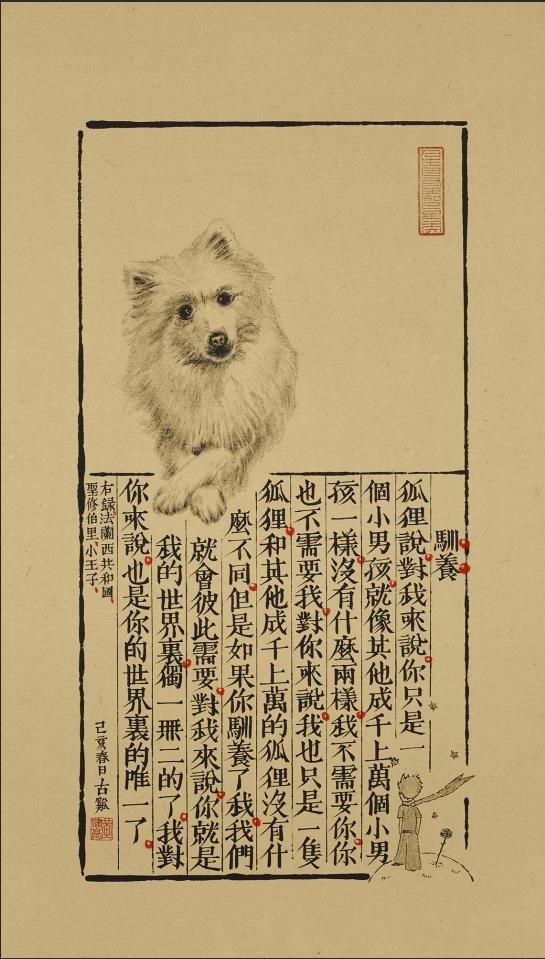 馴養
狐狸說對我來說你只是一
個小男孩就像其他成千上萬個小男
孩一樣沒有什麼兩樣我不需要你你
也不需要我對你來說我也只是一隻
狐狸和其他成千上萬的狐狸沒有什
麼不同但是如果你馴養了我我們
就會彼此需要對我來說你就是
我的世界裏獨一無二的了我對
你來說也是你的世界裏的唯一了
右録法蘭西共和國
聖修伯里小王子
己亥春日古谿